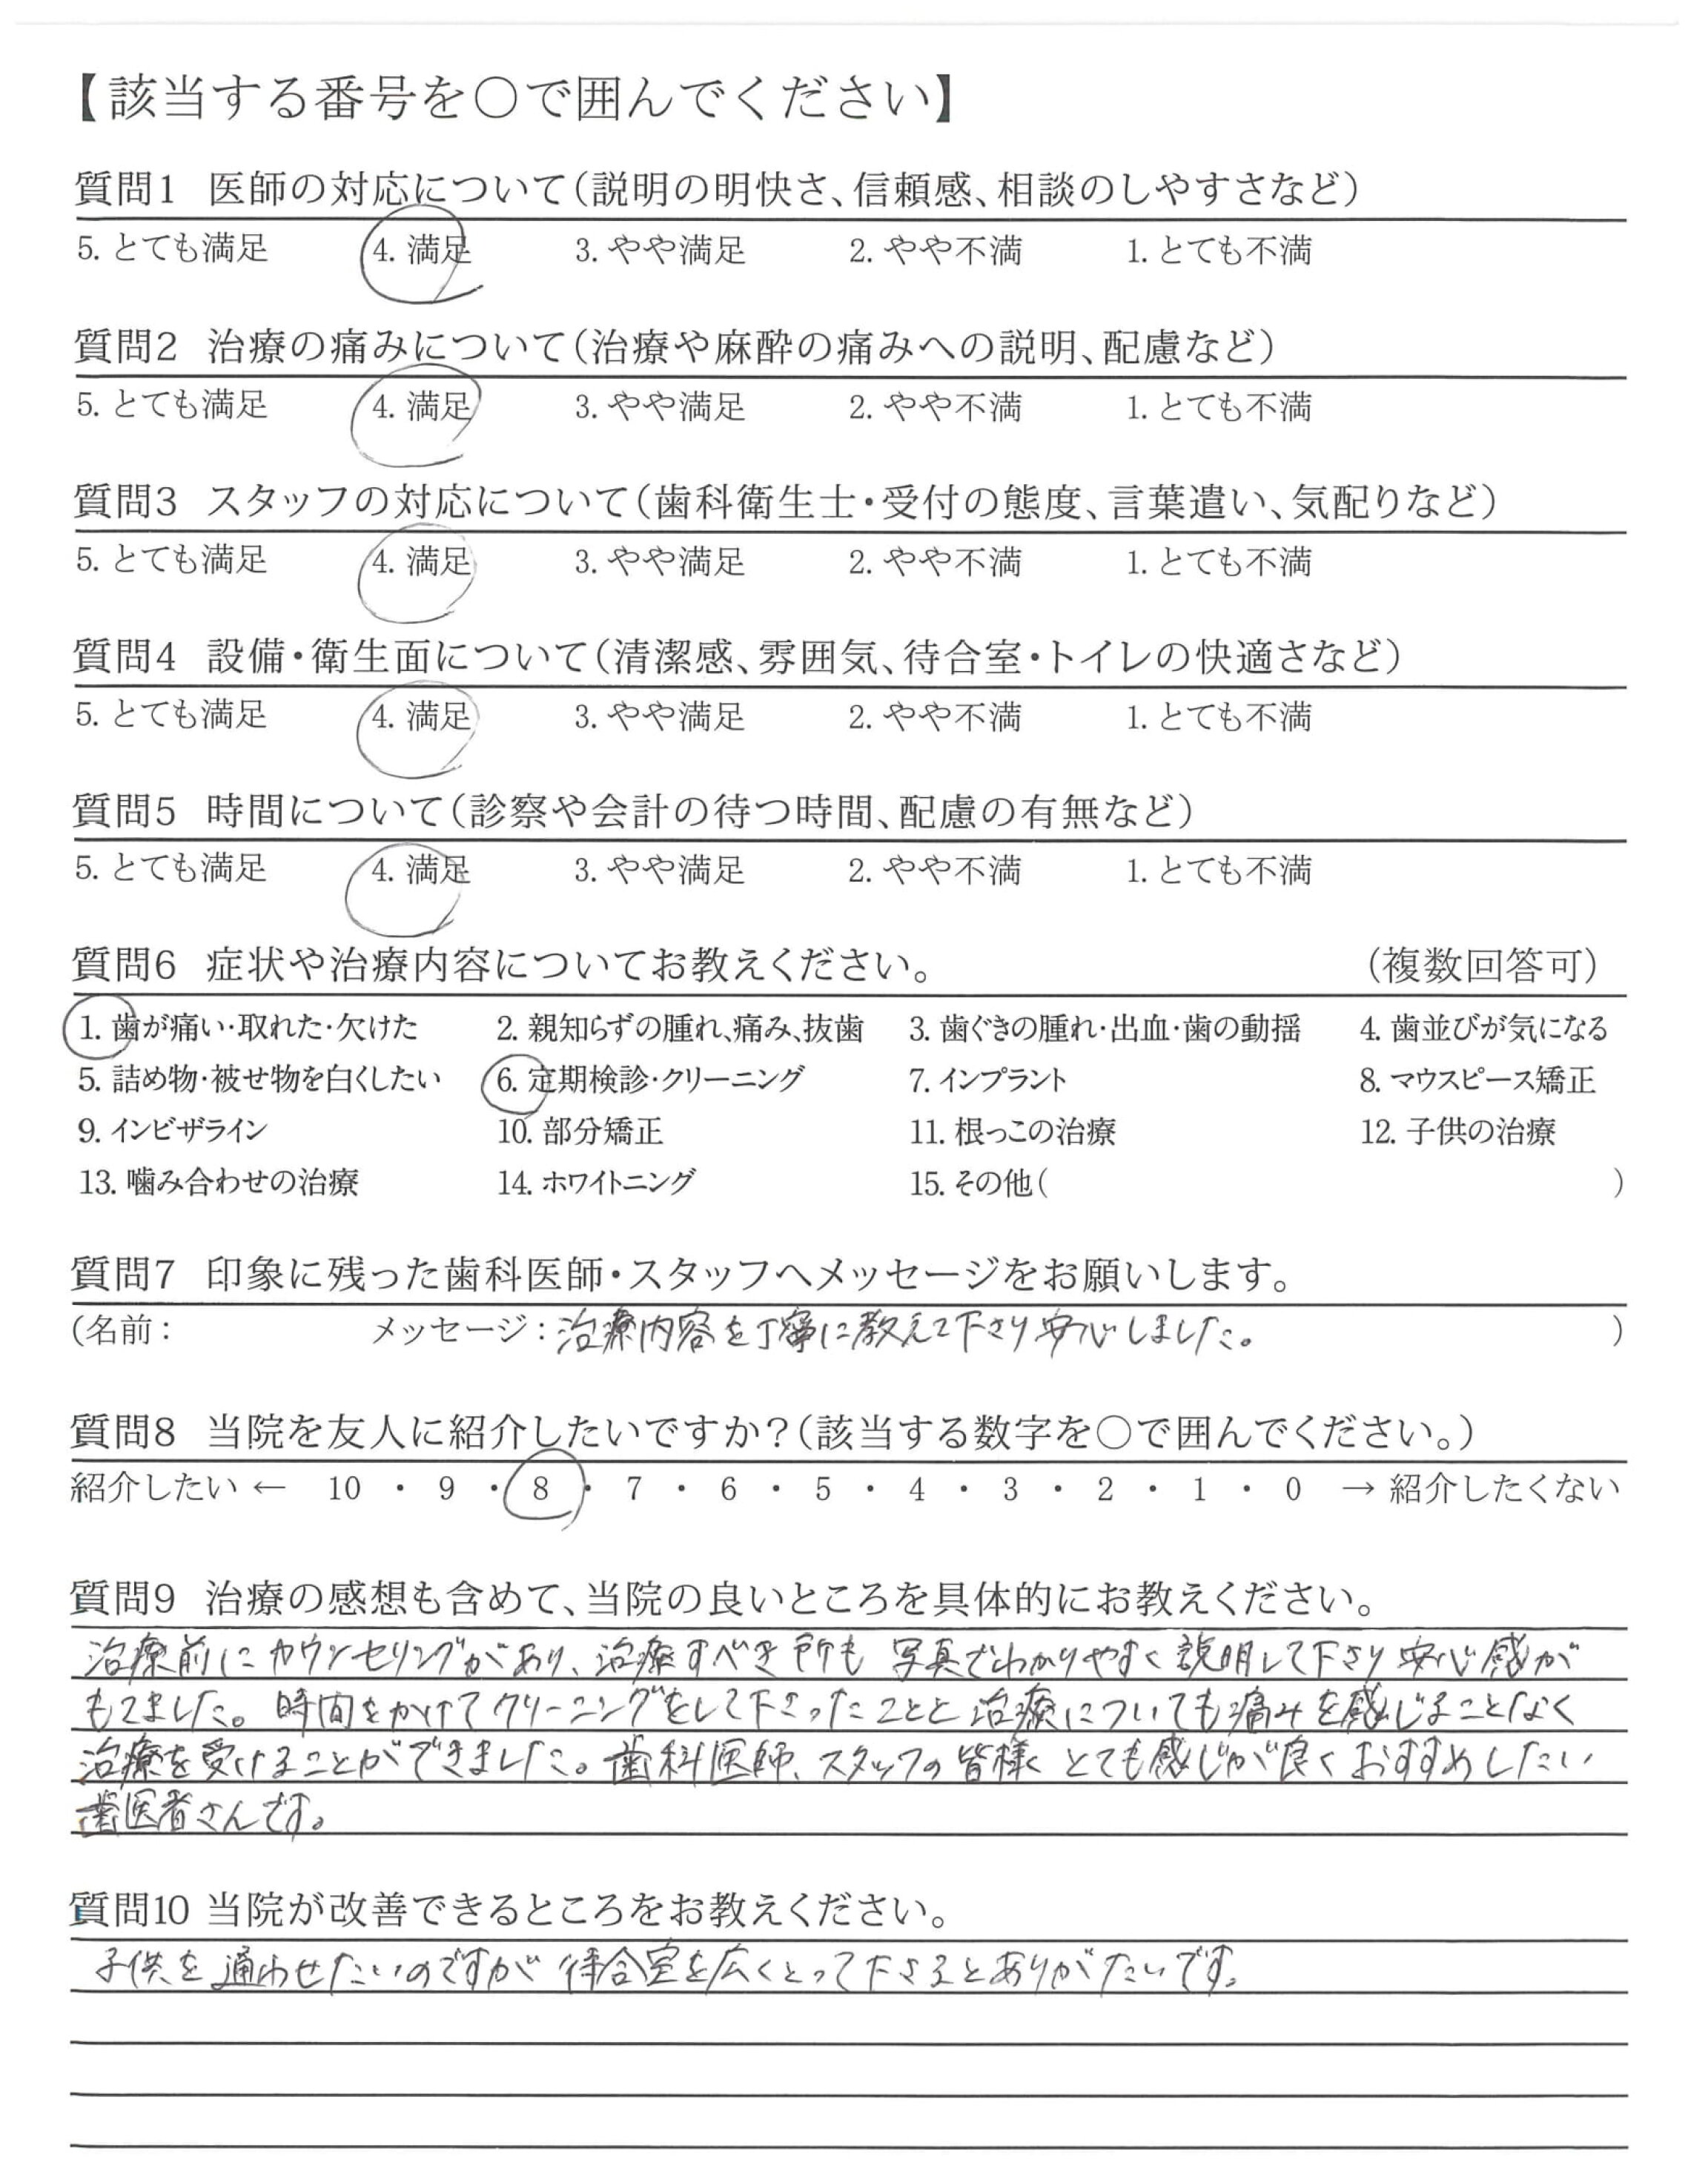 【該当する番号を○で囲んでください】
質問1 医師の対応について(説明の明快さ、信頼感、相談のしやすさなど)
5. とても満足 4. 満足 3. やや満足 2. やや不満 1. とても不満
質問2 治療の痛みについて(治療や麻酔の痛みへの説明、配慮など)
5. とても満足 4. 満足 3. やや満足 2. やや不満 1. とても不満
質問3 スタッフの対応について(歯科衛生士・受付の態度、言葉遣い、気配りなど)
5. とても満足 4. 満足 3. やや満足 2. やや不満 1. とても不満
質問4 設備・衛生面について(清潔感、雰囲気、待合室・トイレの快適さなど)
5. とても満足 4. 満足 3. やや満足 2. やや不満 1. とても不満
質問5 時間について(診察や会計の待つ時間、配慮の有無など)
5. とても満足 4. 満足 3. やや満足 2. やや不満 1. とても不満
質問6 症状や治療内容についてお教えください。 (複数回答可)
1. 歯が痛い・取れた・欠けた 2. 親知らずの腫れ、痛み、抜歯 3. 歯ぐきの腫れ・出血・歯の動揺 4. 歯並びが気になる
5. 詰め物・被せ物を白くしたい 6. 定期検診・クリーニング 7. インプラント 8. マウスピース矯正
9. インビザライン 10. 部分矯正 11. 根っこの治療 12. 子供の治療
13. 噛み合わせの治療 14. ホワイトニング 15. その他( )
質問7 印象に残った歯科医師・スタッフへメッセージをお願いします。
(名前: メッセージ:治療内容を丁寧に教えて下さり安心しました。 )
質問8 当院を友人に紹介したいですか?(該当する数字を○で囲んでください。)
紹介したい ← 10 ・ 9 ・ 8 ・ 7 ・ 6 ・ 5 ・ 4 ・ 3 ・ 2 ・ 1 ・ 0 → 紹介したくない
質問9 治療の感想も含めて、当院の良いところを具体的にお教えください。
治療前にカウンセリングがあり、治療すべき所も写真でわかりやすく説明して下さり安心感が
もてました。時間をかけてクリーニングをして下さったことと治療についても痛みを感じることなく
治療を受けることができました。歯科医師、スタッフの皆様 とても感じが良くおすすめしたい
歯医者さんです。
質問10 当院が改善できるところをお教えください。
子供を通わせたいのですが待合室を広くとって下さるとありがたいです。